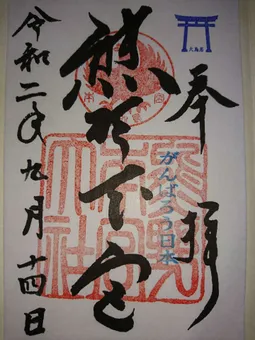 奉拝
がんばろう日本
熊野本宮
熊野本宮大社
令和二年九月十四日